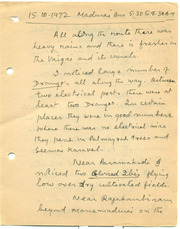 15-10-1972 Madurai Bus 5-30 to 9-30 AM
All along the route there was
heavy rains and there is freshes in
the Vaigai and its canals
I noticed large number of
Drongos all along the way. Between
two electrical posts there were at
least two Drongos. In certain
places they were in good numbers
where there was no electrical wire
they perch in Palmayrah trees and
Seemai Karuvel.
Near Paramakudi I
noticed two Ibis flying
low over dry cultivated fields
Near Rajakambiram
beyond Manamadurai on the